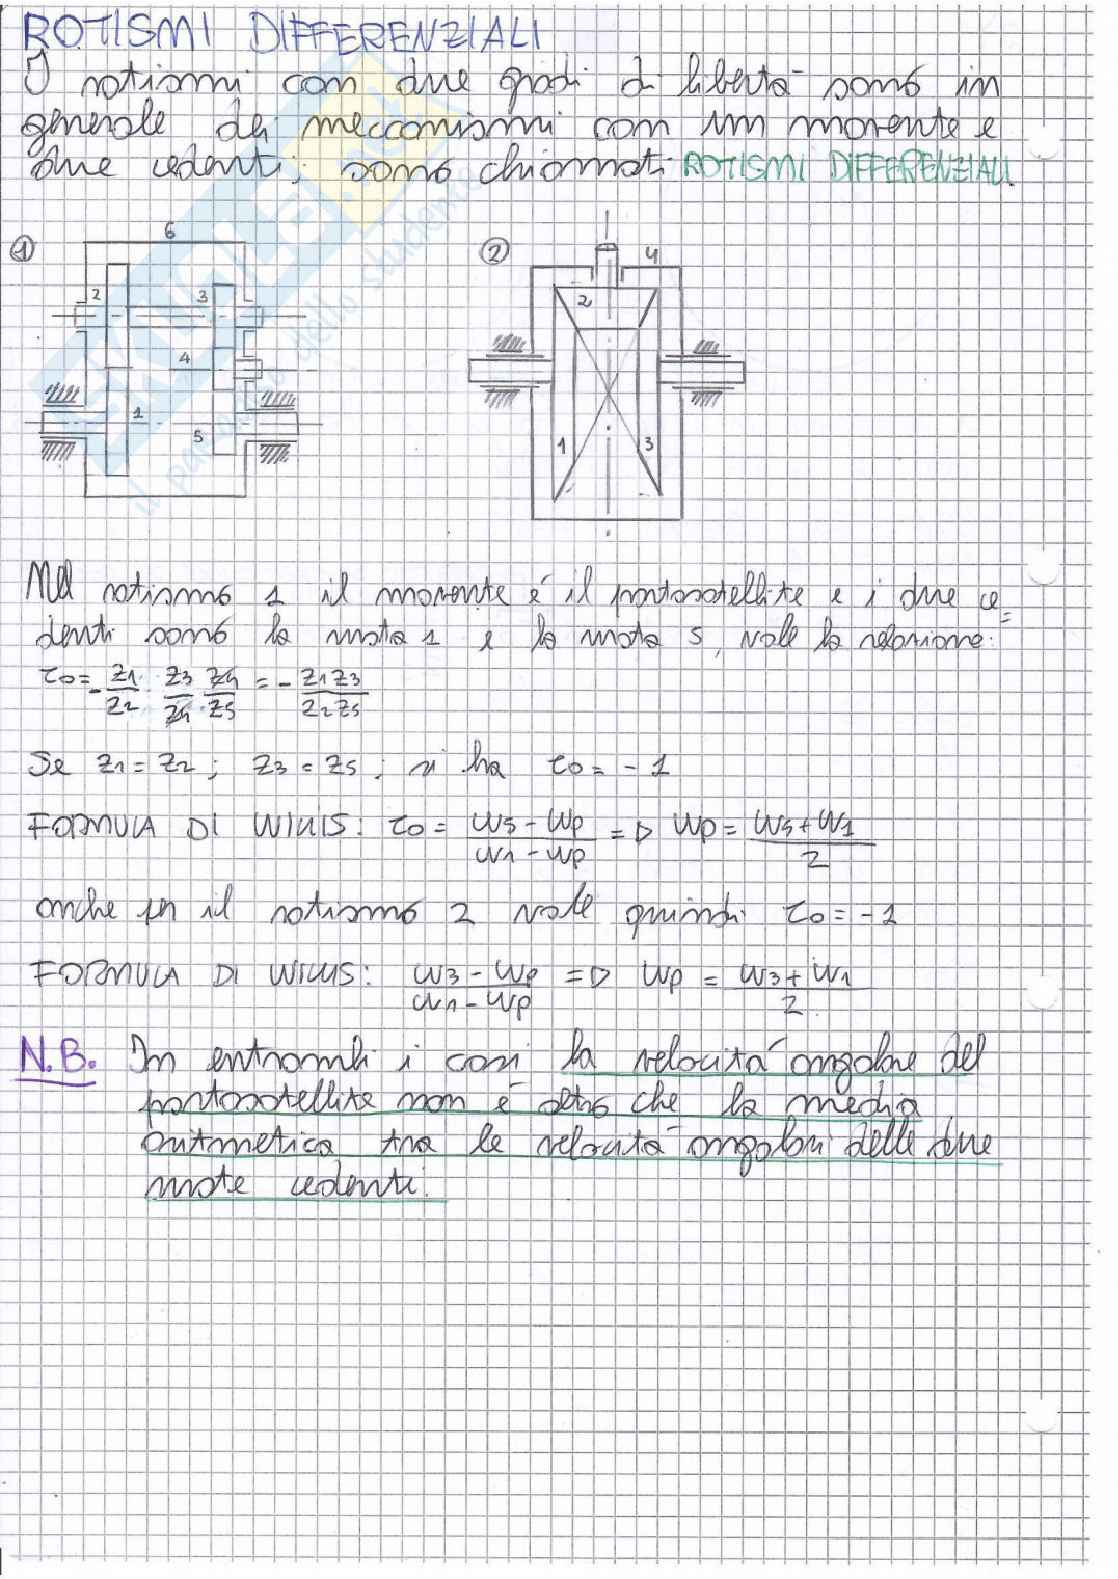 ROTISMI DIFFERENZIALI
I rotismi con due gradi di libertà sono in
generale dei meccanismi con un movente e
due cedenti; sono chiamati ROTISMI DIFFERENZIALI
1 6
2 3
4
1
5
2 4
2
1 3
SKUOLA.net
il paradiso dello studente
Nel rotismo 1 il movente é il portasatellite e i due ce=
denti sono la ruota 1 e la ruota 5, vale la relazione:
τ0 = - Z1/Z2 · Z3/Z4 · Z4/Z5 = - Z1Z3/Z2Z5
Se Z1 = Z2 ; Z3 = Z5 ; si ha τ0 = - 1
FORMULA DI WILLIS: τ0 = W5 - Wp / W1 - Wp => Wp = W5 + W1 / 2
anche per il rotismo 2 vale quindi τ0 = - 1
FORMULA DI WILLIS: W3 - Wp / W1 - Wp => Wp = W3 + W1 / 2
N.B. In entrambi i casi la velocità angolare del
portasatellite non é altro che la media
aritmetica tra le velocità angolari delle due
ruote cedenti.